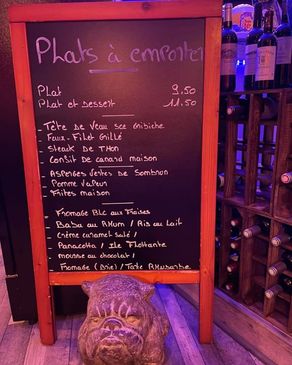 Plats à emporter
Plat 9.50
Plat et Dessert 11.50
- Tête de Veau sce Gibiche
- Faux-Filet Grillé
- Steak de Thon
- Confit de canard maison
- Asperges Vertes de
- Pomme Vapeur
- Frites maison
- Fromage BLC aux Fraises
- Baba au Rhum / Ris au Lait
- Crème caramel salé /
- Panacotta / Ile Flottante
- mousse au chocolat /
- Fromage (Brie) / Tarte Rhubarbe